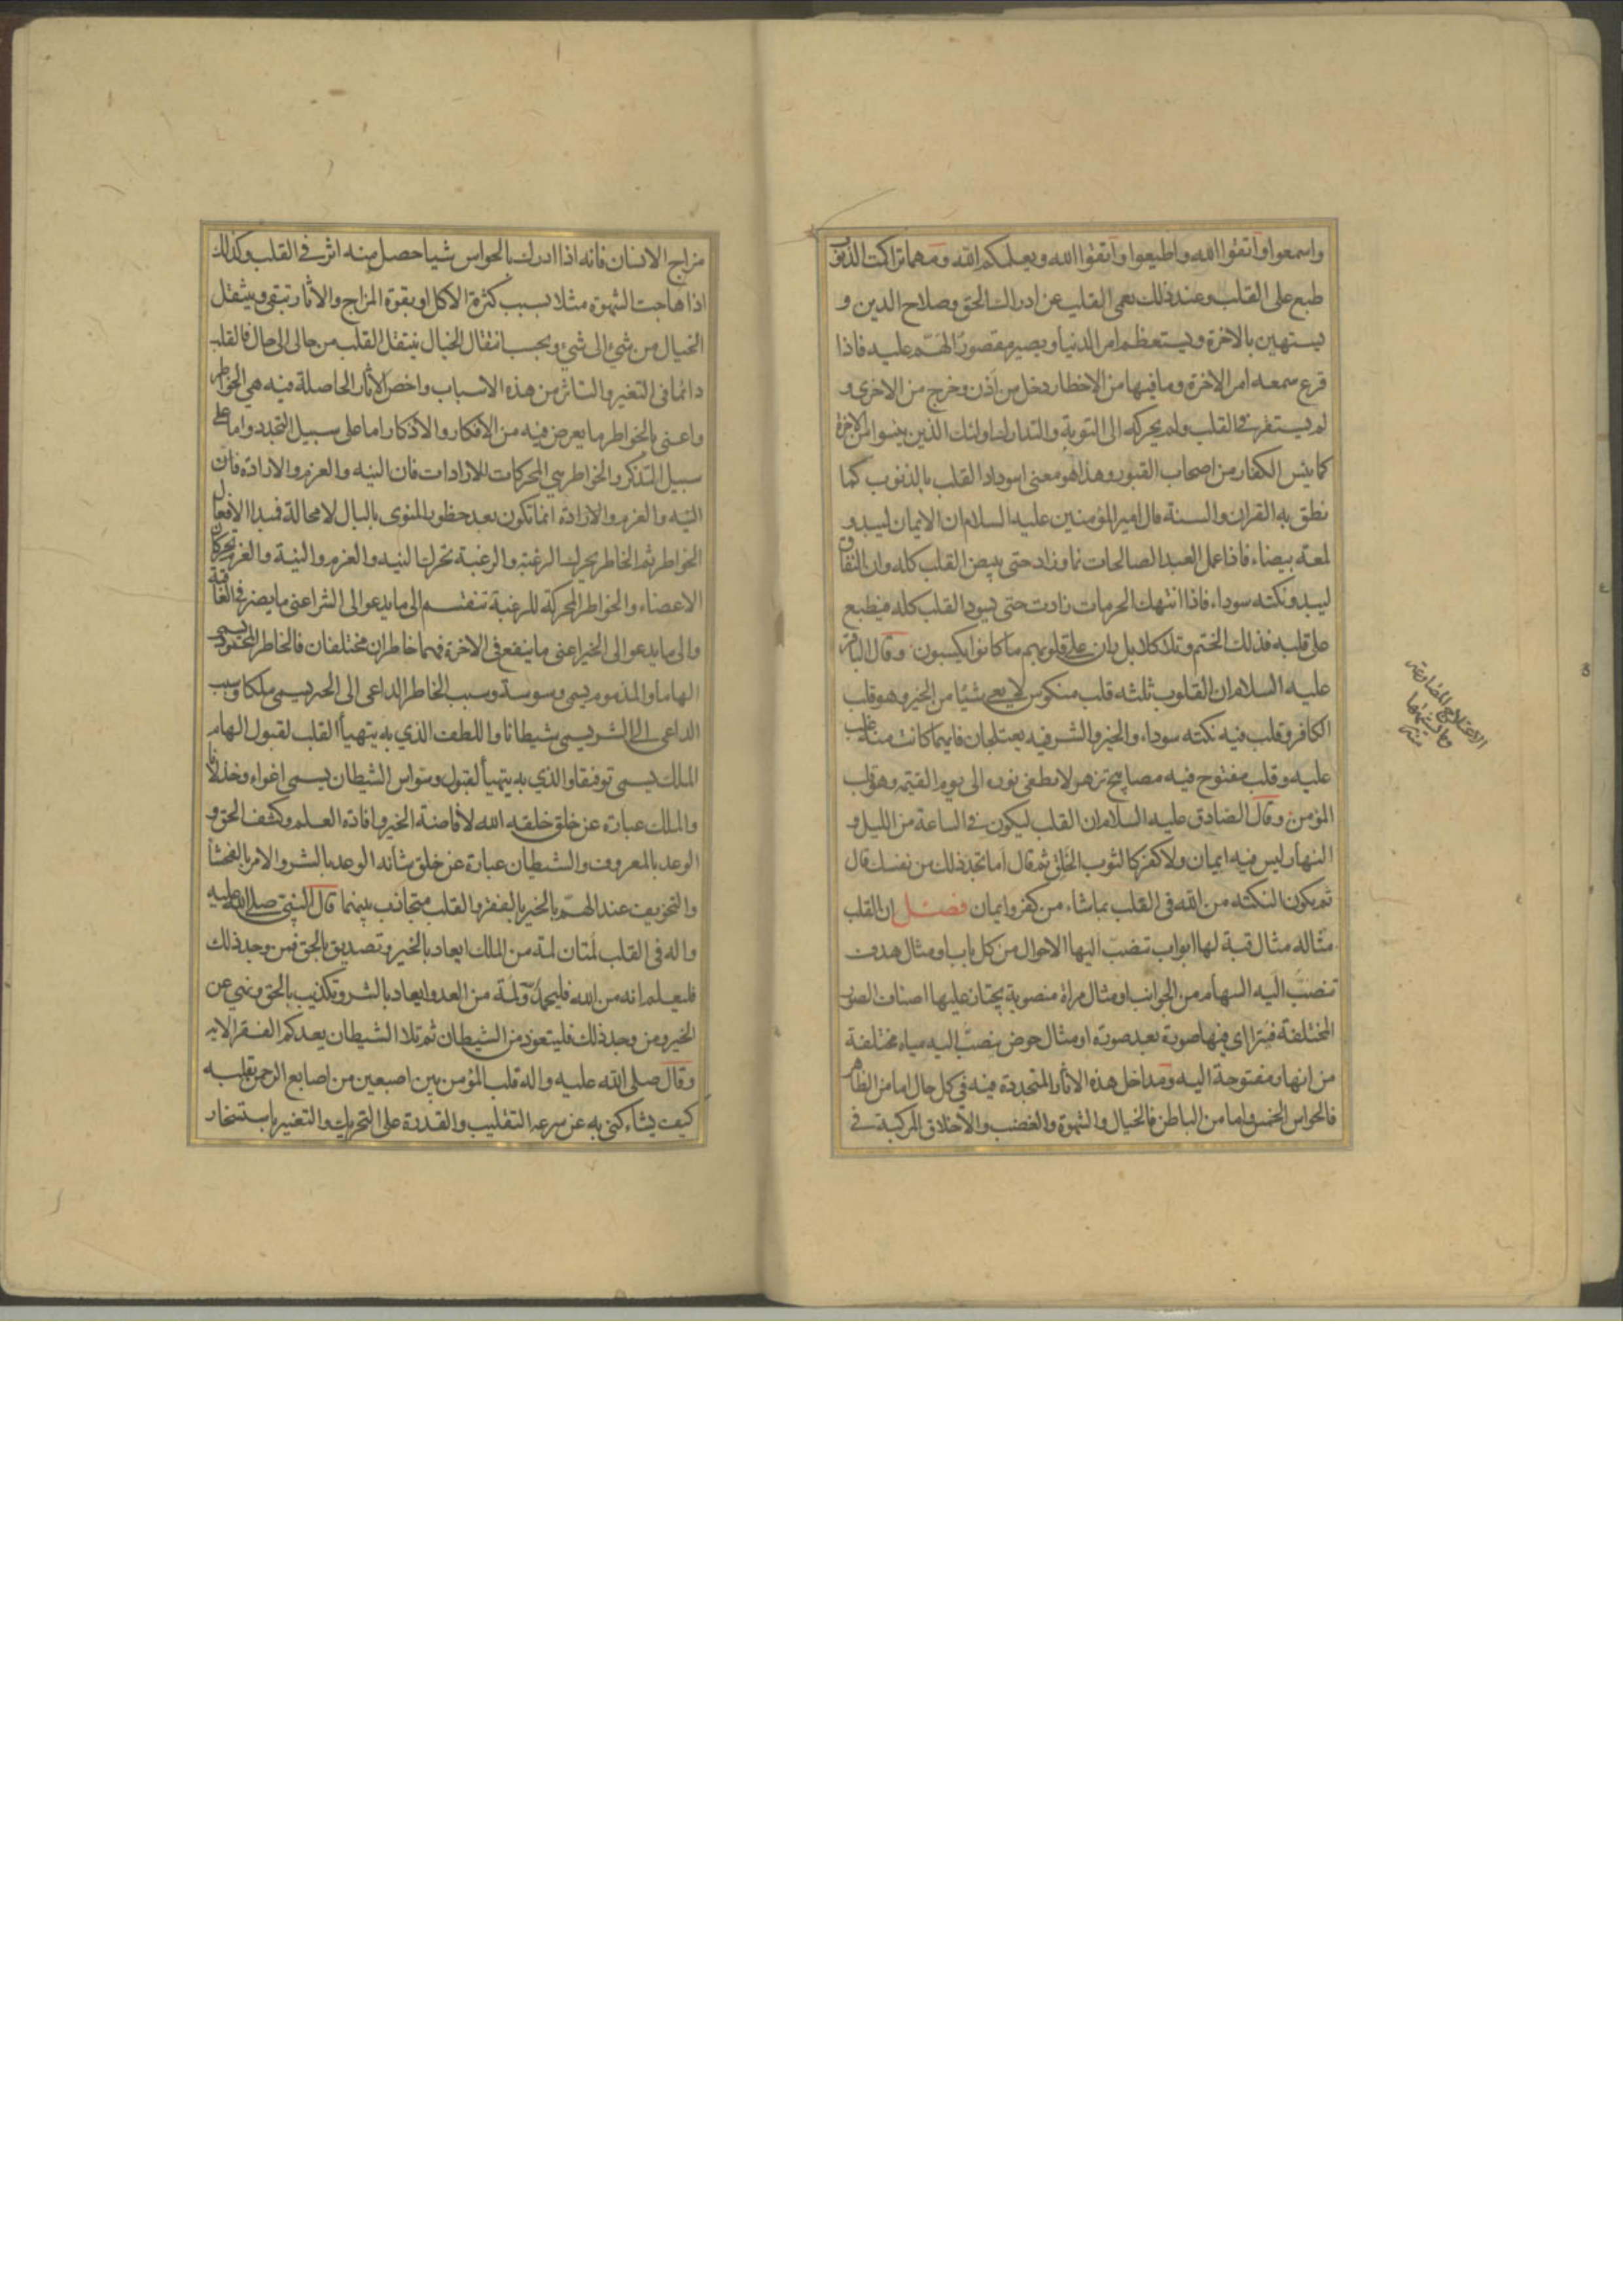 واسمعوا واتقوا الله واطيعوا واتقوا الله ويعلمكم الله ومهما تراكت الذنوب
طبع على القلب وعند ذلك يعمى القلب عن ادراك الحق وصلاح الدين و
يستهين بالاخرة ويستعظم امر الدنيا ويصير مقصور الهم عليه فاذا
قرع سمعه امر الاخرة وما فيها من الاخطار دخل من اذن وخرج من الاخرى و
لم يستقر في القلب ولم يحركه الى التوبة والتدارك اولئك الذين يئسوا من الاخرة
كما يئس الكفار من اصحاب القبور وهذا هو معنى اسوداد القلب بالذنوب كما
نطق به القران والسنة قال امير المؤمنين عليه السلام ان الايمان ليبدو
لمعة بيضاء فاذا عمل العبد الصالحات نما وزاد حتى يبيض القلب كله وان النفاق
ليبدو نكته سوداء فاذا انتهك الحرمات زادت حتى يسود القلب كله فيطبع
على قلبه فذلك الختم وتلا كلا بل ران على قلوبهم ما كانوا يكسبون وقال الباقر
عليه السلام ان القلوب ثلثه قلب منكوس لا يعي شيئا من الخير وهو قلب
الكافر وقلب فيه نكته سوداء والخير والشر فيه يعتلجان فايهما كانت منه غلب
عليه وقلب مفتوح فيه مصابيح تزهر لا يطفى نوره الى يوم القيمه وهو قلب
المؤمن وقال الصادق عليه السلام ان القلب ليكون في الساعة من الليل و
النهار ليس فيه ايمان ولا كفر كالثوب الخلق ثم قال اما تجد ذلك من نفسك قال
ثم يكون النكته من الله في القلب بما شاء من كفر وايمان فصل ان القلب
مثاله مثال قبة لها ابواب تنصب اليها الاحوال من كل باب او مثال هدف
تنصب اليه السهام من الجوانب او مثال مراة منصوبة يجتاز عليها اصناف الصور
المختلفة فيترااى فيها صورة بعد صورة او مثال حوض ينصب اليه مياه مختلفة
من انهار مفتوحة اليه ومداخل هذه الاثار المتجددة فيه في كل حال اما من الظاهر
فالحواس الخمس واما من الباطن فالخيال والشهوة والغضب والاخلاق المركبة في
الاعتلاج المضارعة
مزاج الانسان فانه اذا ادرك بالحواس شيا حصل منه اثر في القلب وكذلك
اذا هاجت الشهوة مثلا بسبب كثرة الاكل او بقوة المزاج والاثار تبقى وينتقل
الخيال من شيء الى شيء وبحسب انتقال الخيال ينتقل القلب من حال الى حال فالقلب
دائما في التغير والتاثر من هذه الاسباب واخص الاثار الحاصلة فيه هي الخواطر
واعنى بالخواطر ما يعرض فيه من الافكار والاذكار اما على سبيل التجدد واما على
سبيل التذكر والخواطر هي المحركات للارادات فان النيه والعزم والارادة فان
النيه والعزم والارادة انما تكون بعد خطور المنوى بالبال لا محالة فمبدا الافعال
الخواطر ثم الخاطر يحرك الرغبة والرغبة تحرك النيه والعزم والنية والعزم تحركان
الاعضاء والخواطر المحركة للرغبة تنقسم الى ما يدعو الى الشر اعنى ما يضر في العاقبة
والى ما يدعو الى الخير اعنى ما ينفع في الاخرة فهما خاطران مختلفان فالخاطر المحمود يسمى
الهاما والمذموم يسمى وسوسة وسبب الخاطر الداعى الى الخير يسمى ملكا وسبب
الداعى الى الشر يسمى شيطانا واللطف الذي به يتهيأ القلب لقبول الهام
الملك يسمى توفيقا والذي به يتهيأ لقبول وسواس الشيطان يسمى اغواء وخذلانا
والملك عبارة عن خلق خلقه الله لافاضة الخير وافادة العلم وكشف الحق و
الوعد بالمعروف والشيطان عبارة عن خلق شانه الوعد بالشر والامر بالفحشاء
والتخويف عند الهم بالخير بالفقر والقلب متجاذب بينهما قال النبي صلى الله عليه
واله في القلب لمتان لمة من الملك ايعاد بالخير وتصديق بالحق فمن وجد ذلك
فليعلم انه من الله فليحمده ولمة من العدو ايعاد بالشر وتكذيب بالحق ونهي عن
الخير ومن وجد ذلك فليتعوذ من الشيطان ثم تلا الشيطان يعدكم الفقر الايه
وقال صلى الله عليه واله قلب المؤمن بين اصبعين من اصابع الرحمن يقلبه
كيف يشاء كنى به عن سرعه التقليب والقدرة على التحريك والتغيير باستسخار